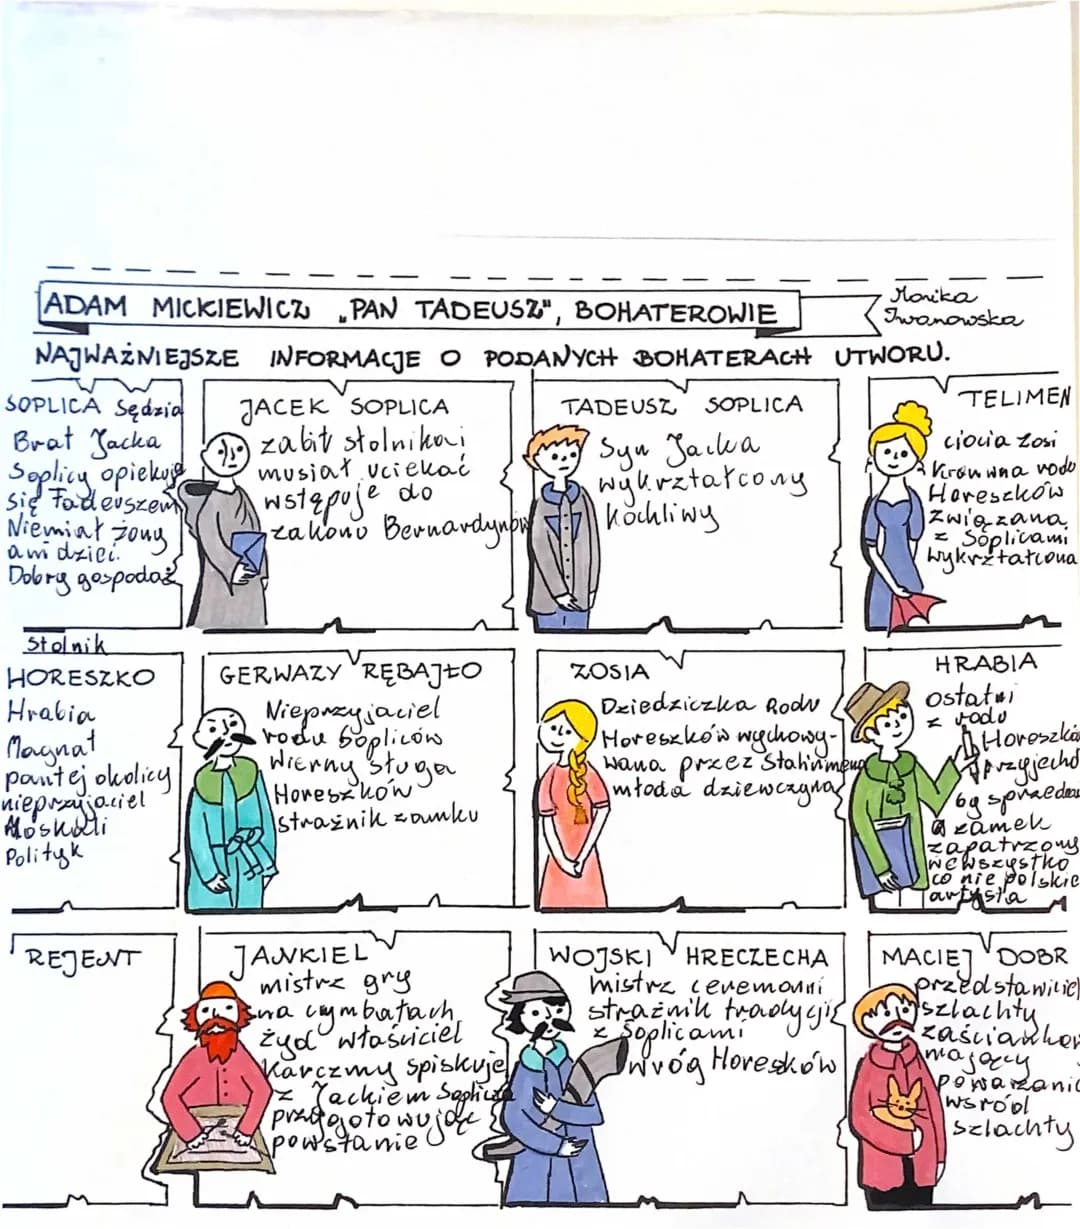 ADAM MICKIEWICZ „PAN TADEUSZ", BOHATEROWIE
Monika
Iwanowska
NAJWAŻNIEJSZE INFORMACJE O PODANYCH BOHATERACH UTWORU.
SOPLICA Sędzia
Brat Jacka
Soplicy opiekuje
się Tadeuszem
Niemiał żony
ani dzieci.
Dobry gospodaż
JACEK SOPLICA
zabił stolnika i
musiał uciekać
wstępuje do
zakonu Bernardynów
TADEUSZ SOPLICA
Syn Jacka
wykrztałcony
Kochliwy
TELIMEN
ciocia Zosi
Krewna rodu
Horeszków
związana
z Soplicami
wykrztałcona
Stolnik
HORESZKO
Hrabia
Magnat
pan tej okolicy
nieprzyjaciel
Moskali
Polityk
GERWAZY RĘBAJŁO
Nieprzyjaciel
rodu Sopliców
Wierny sługa
Horeszków
strażnik zamku
ZOSIA
Dziedziczka Rodu
Horeszków wychowy-
wana przez
młoda dziewczyna
HRABIA
ostatni
z rodu
Horeszkó
przyjecha
by sprzeda
zamek
zapatrzony
we wszystko
co nie polskie
artysta
REJENT
JANKIEL
mistrz gry
na cymbałach
żyd właściciel
Karczmy spiskuje
z Jackiem Soplicą
przygotowując
powstanie
WOJSKI HRECZECHA
mistrz ceremonni
strażnik tradycji
z Soplicami
wróg Horeszków
MACIEJ DOBR
przedstawiciel
szlachty
zaściankow
mający
poważanie
wsród
szlachty